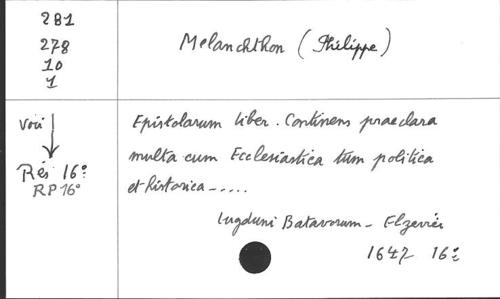 281
278
10
1
Melanchthon (Philippe)
Voir
Rés 16º
RP 16º
Epistolarum liber. Continens praeclara
multa cum Ecclesiastica tum politica
et historica -.....
Lugduni Batavorum - Elzevier
1647 16º